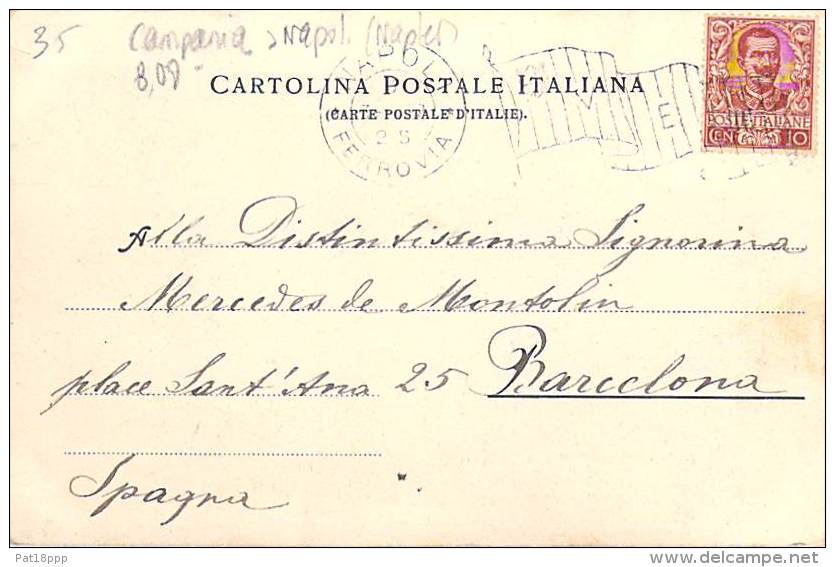 35 Campania > Napoli (Naples)
8,00
CARTOLINA POSTALE ITALIANA
(CARTE POSTALE D'ITALIE).
NAPOLI
25
FERROVIA
E
POSTE ITALIANE
CENT 10
Alla Distintissima Signorina
Mercedes de Montolin
place Sant'Ana 25 Barcelona
Spagna
Pat18ppp
www.delcampe.net